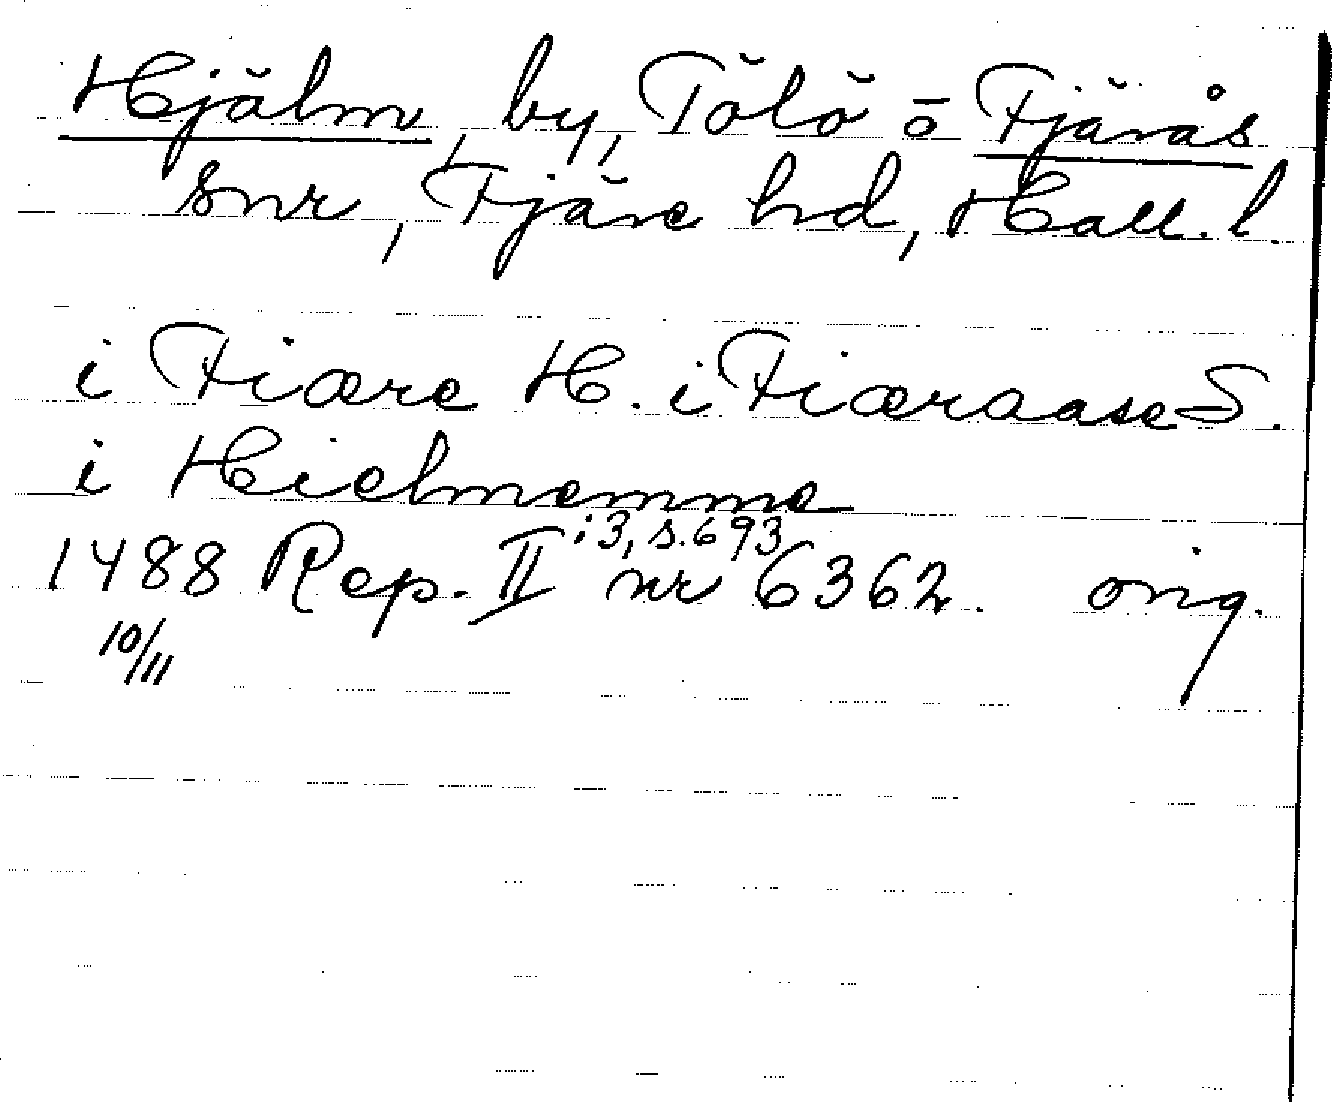 Hjälm, by, Tölö o Fjärås
snr, Fjäre hd, Hall. l.
i Fiære H. i Fiæraase S.
i Hielmemme
i 3, s. 693
1488 Rep. II nr 6362. orig.
10/11